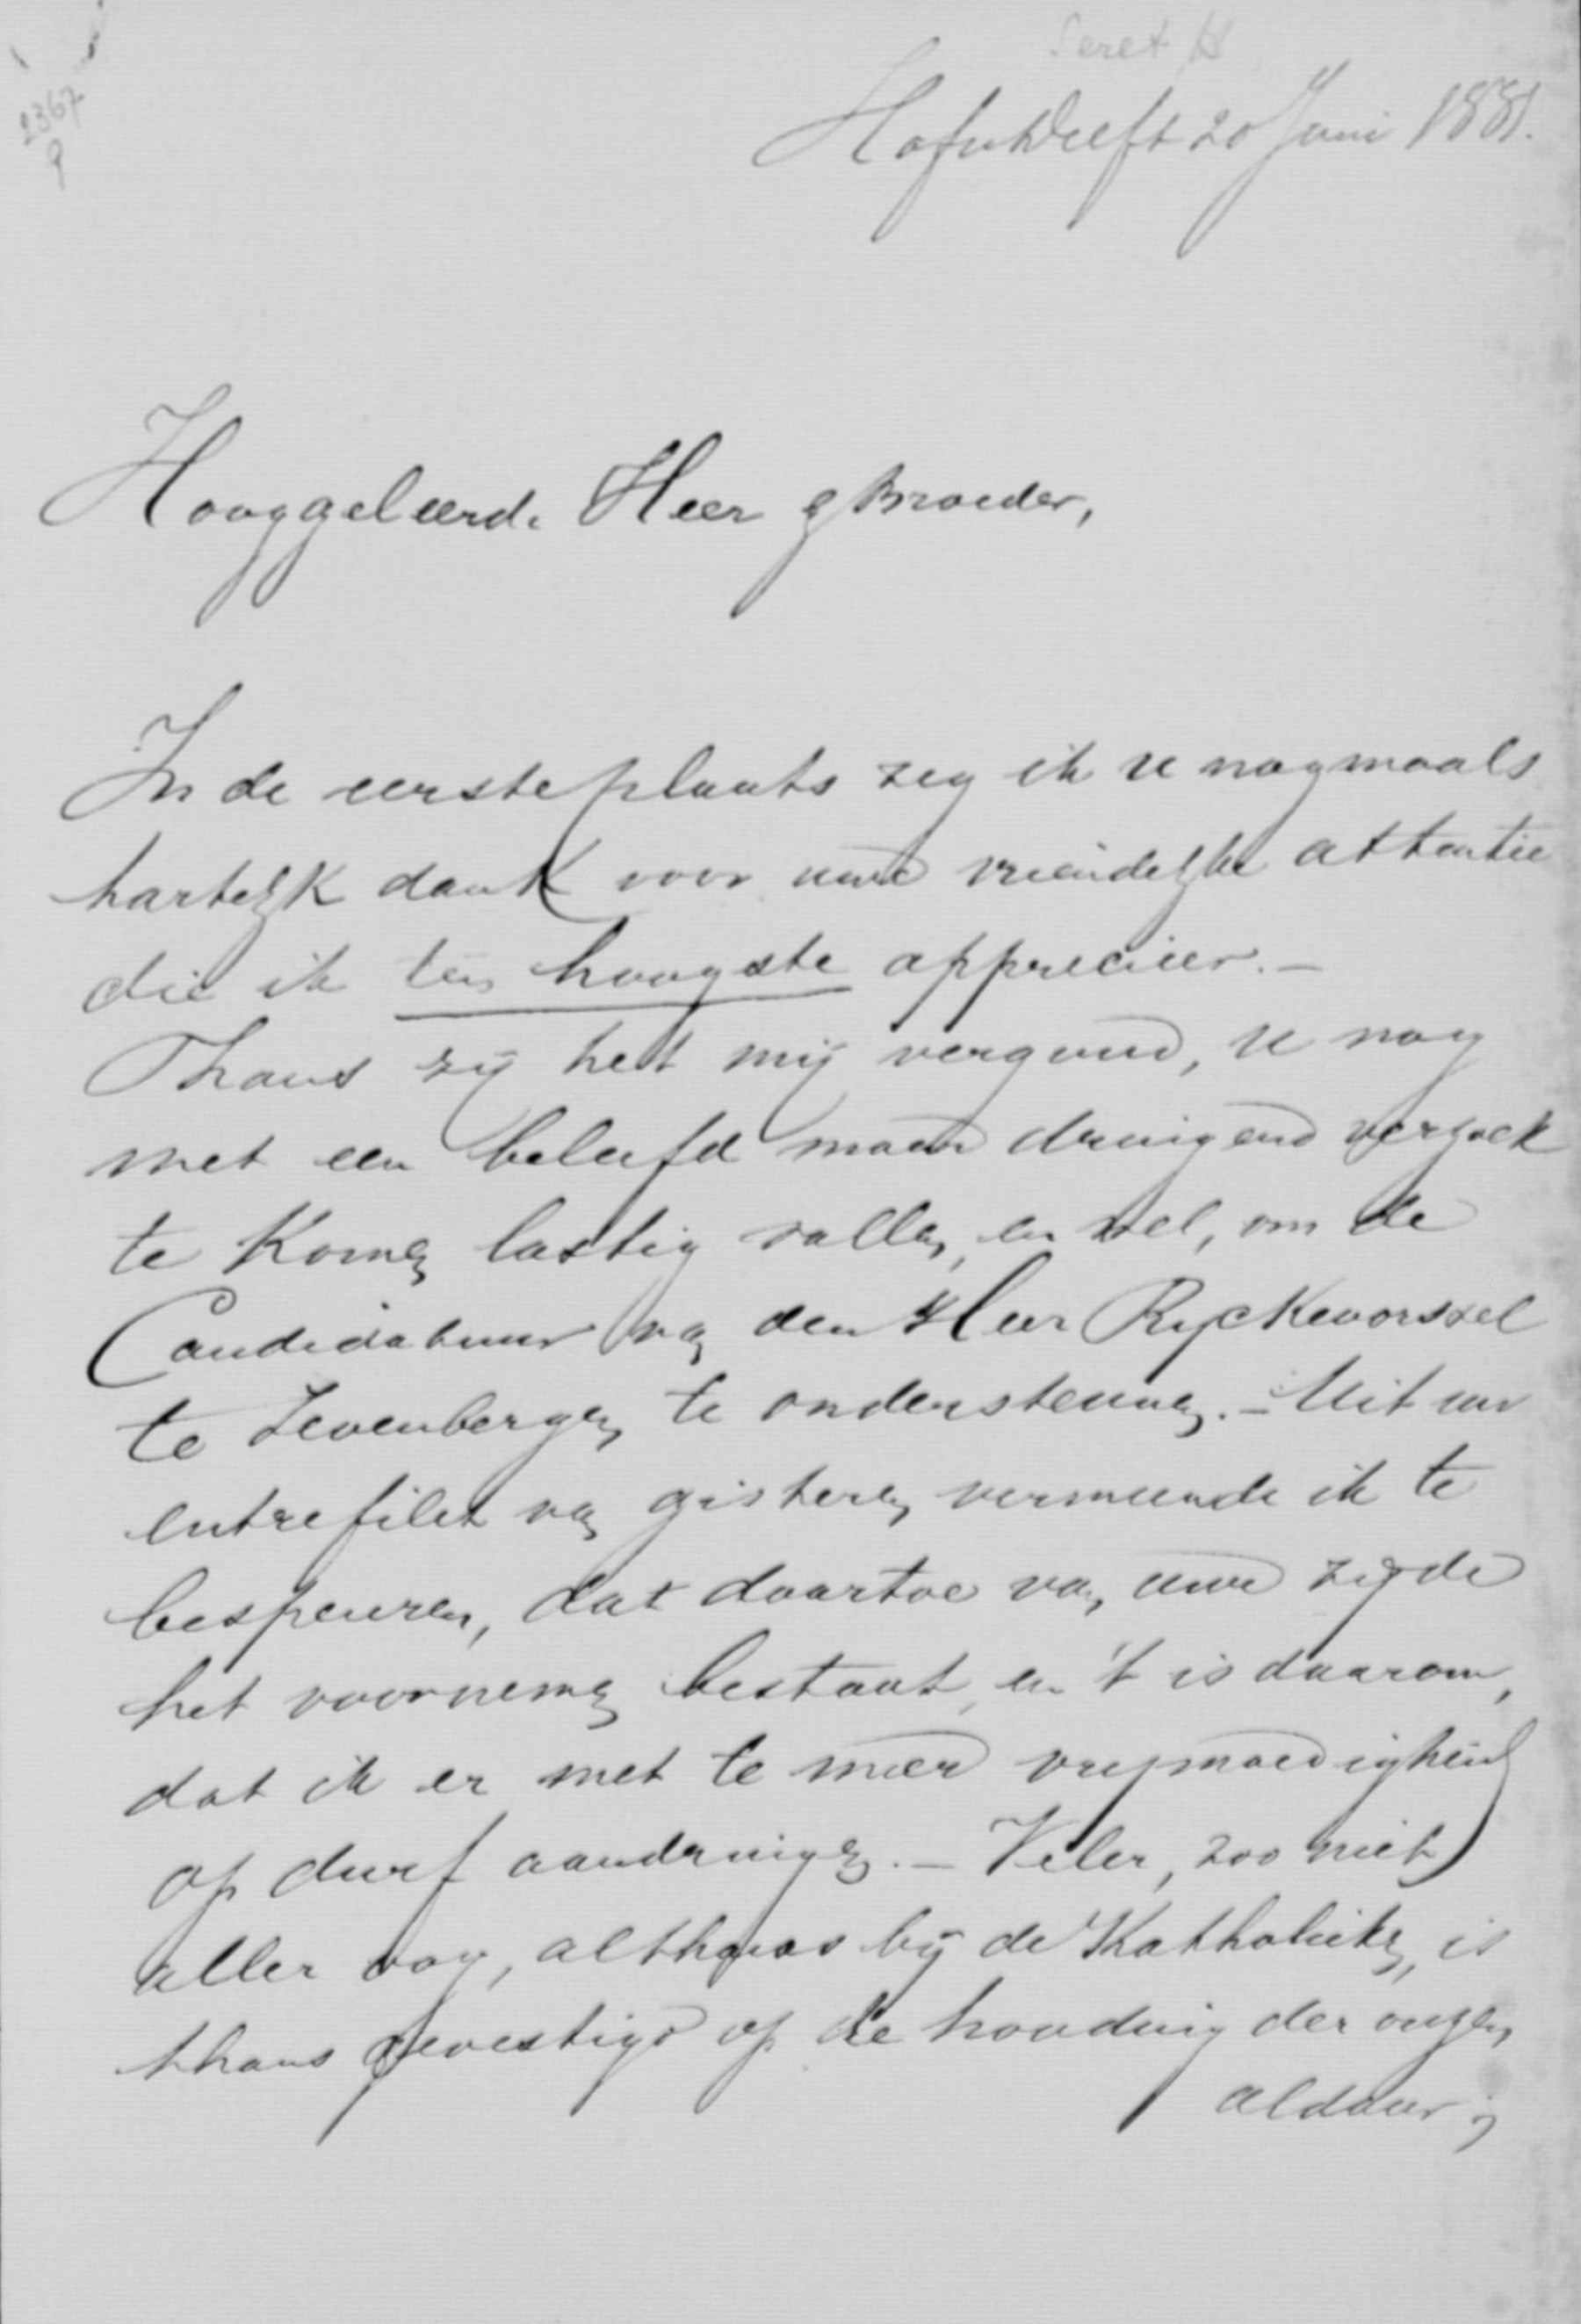 2367
9
Hof v Delft 20 Juni 1881.
Hooggeleerde Heer & Broeder,
In de eerste plaats zeg ik U nogmaals
hartelijk dank voor uwe vriendelijke attentie
die ik ten hoogste apprecieer. –
Thans zij het mij vergund, U nog
met een beleefd maar dringend verzoek
te komen lastig vallen, en wel, om de
Candidatuur van den Heer Ryckevorssel
te Zevenbergen te ondersteunen. – Uit uw
entrefilet van gisteren vermeende ik te
bespeuren, dat daartoe van uwe zijde
het voornemen bestaat, en 't is daarom,
dat ik er met te meer vrijmoedigheid
op durf aandringen. – Veler, zoo niet
aller oog, althans bij de Katholieken, is
thans gevestigd op de houding der onzen
aldaar;